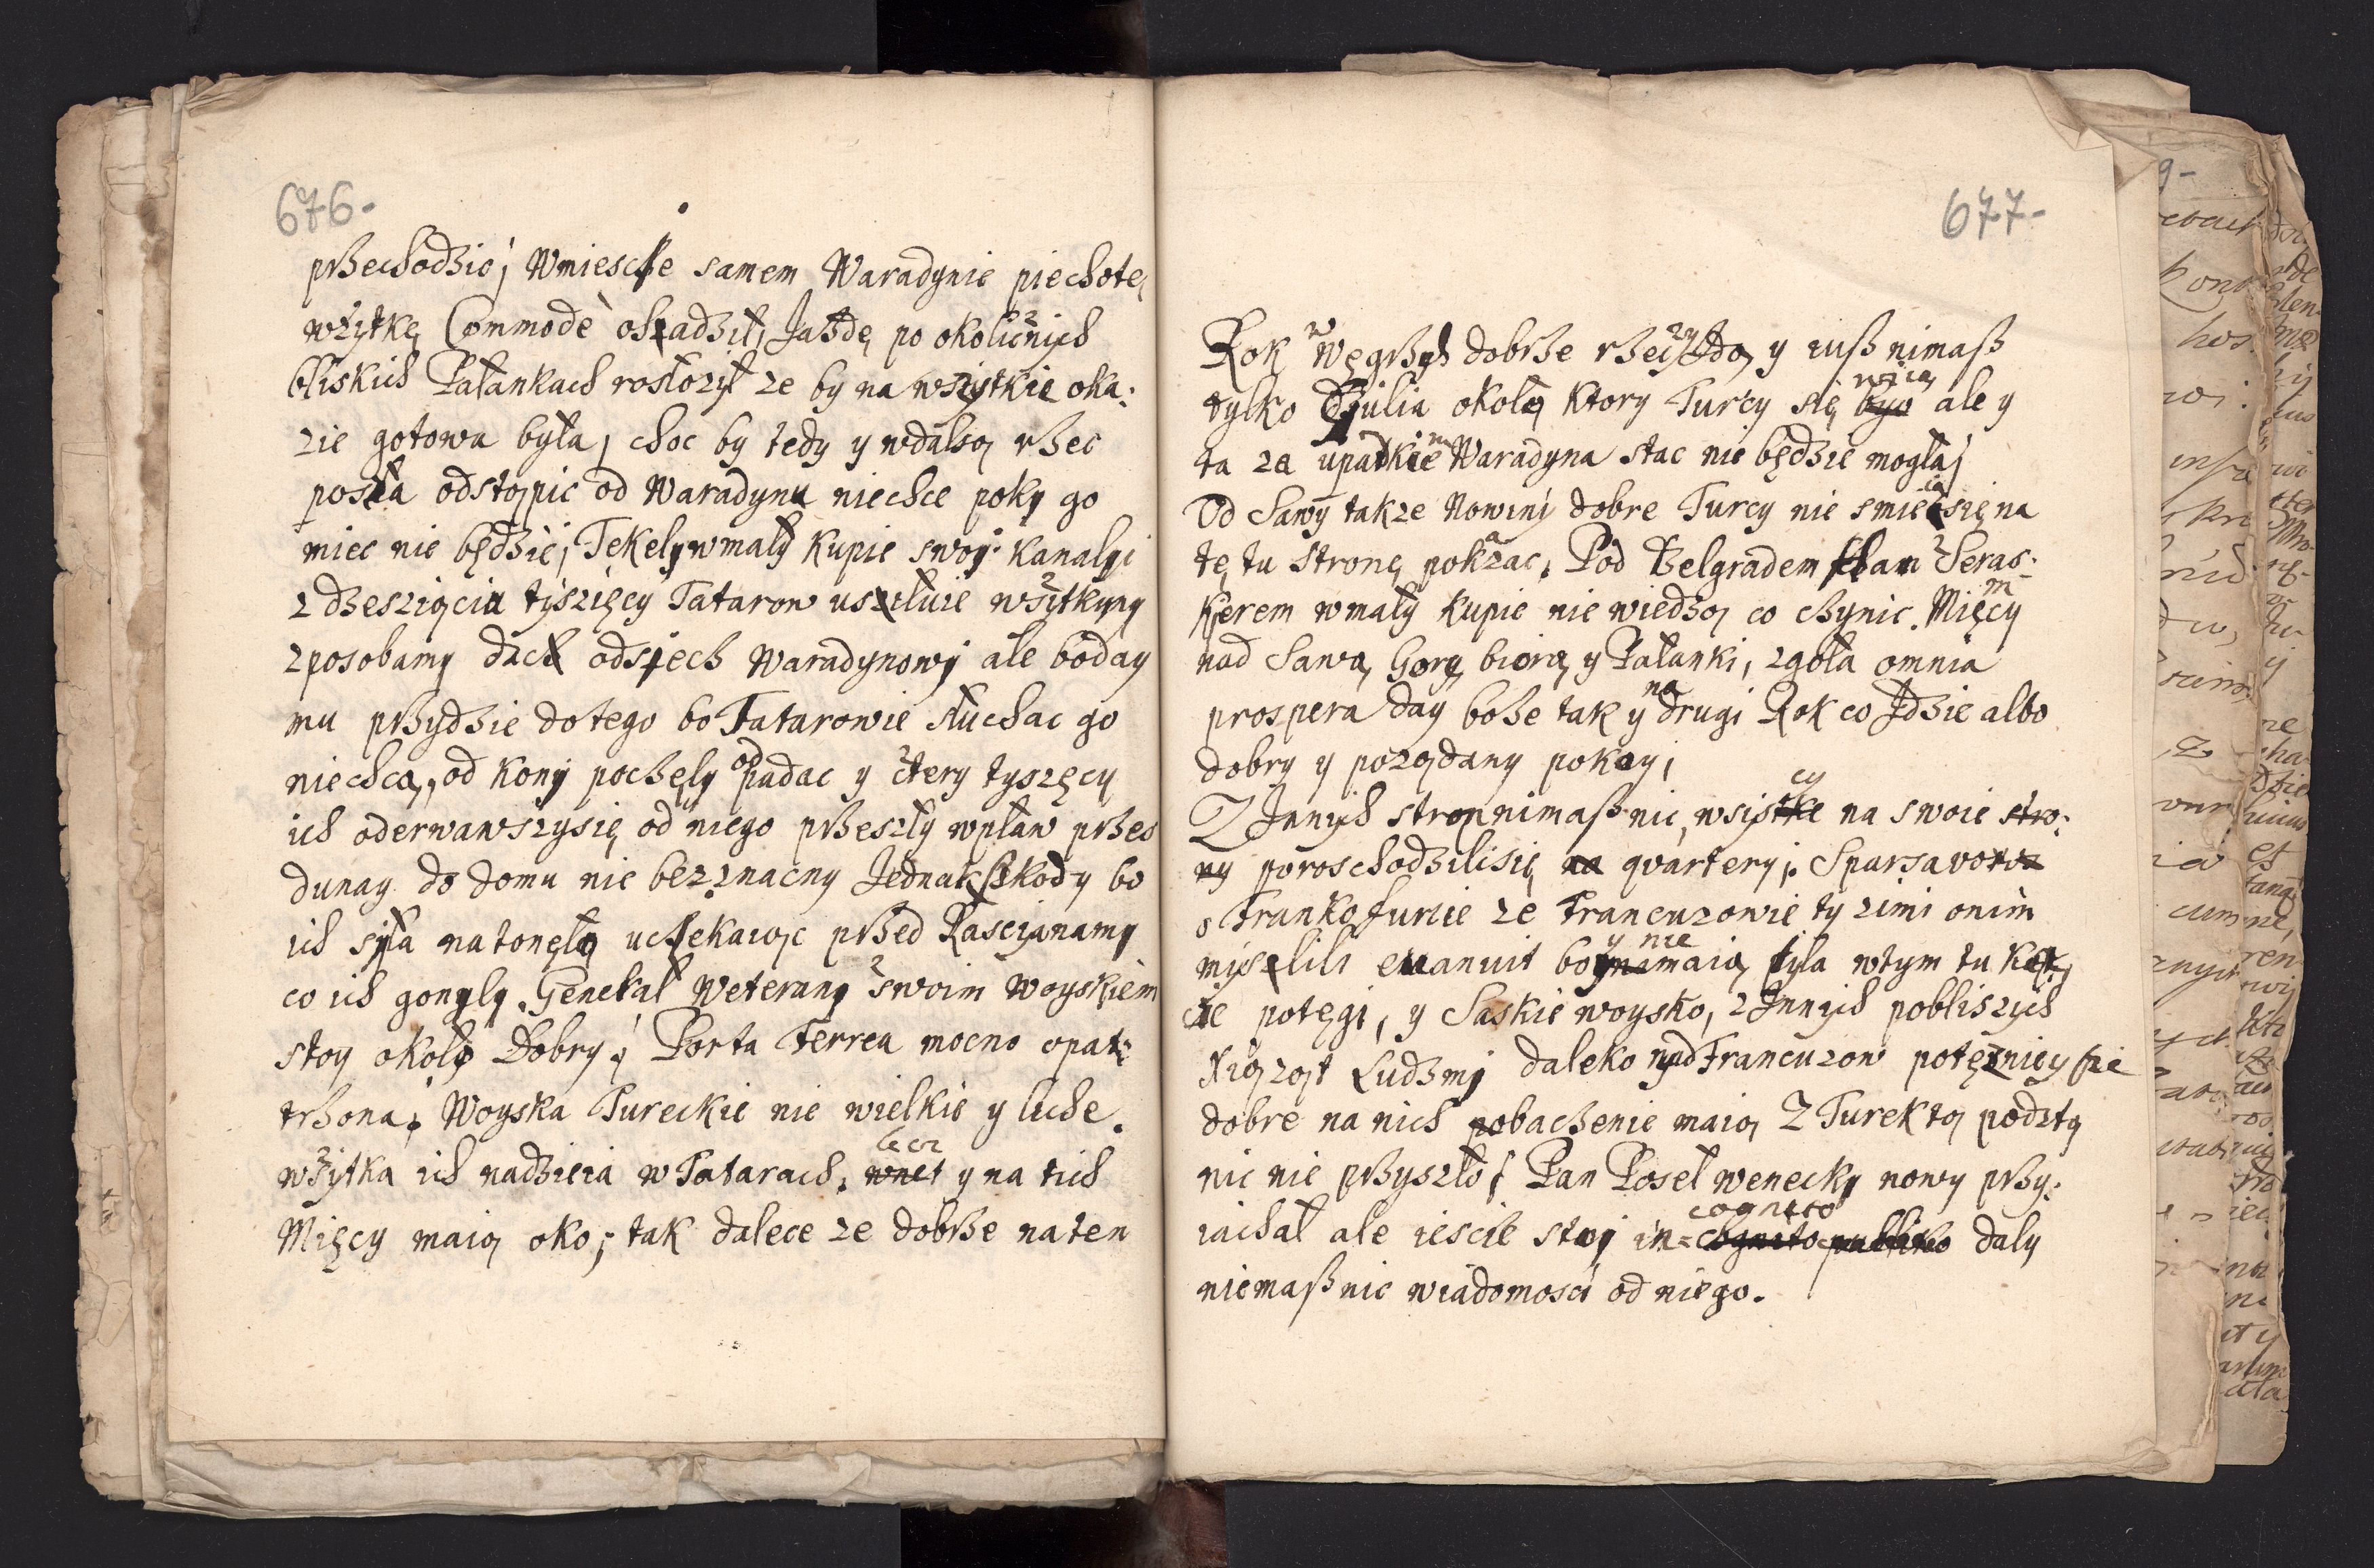 676.
przechodzić, Wmiescie samem Waradynie piechotę
wżytkę Commodè oszadził, Jazdę po okolicznich
bliskich Pałankach rosłożył ze by na wszytkie oka:
zie gotowa była, choc by tedy y wdalszą rzec
poszła odstąpic od Waradynu niechce poky go
miec nie będzie, Tekely wmały kupie swoy kanalyi
z dzesziącią tyszięcy Tatarow uszeluie wżytkymy
zposobamy dać odsiech Waradynowy ale boday
mu przydzie do tego bo Tatarowie słuchac go
niechcą, od kony poczęly odpadac y cztery tyszęcy
ich oderwawszysię od niego przeszły wpław przes
dunay do domu nie bez znacny Jednak szkody bo
ich syła natonęło uciekaiąc przed Rascyanamy
co ich gonyly. Generał Weterany z swoim Woyskiem
stoy około Dobry, Porta Ferrea mocno opat:
trzona, Woyska Tureckie nie wielkie y liche.
wżytka ich nadzieia w Tatarach, wnet lecz y na tich
Mięcy maią oko, tak dalece ze dobrze na ten
677-
Rok w Węgrzech dobrze rzeczy Idą y iusz nimasz
tylko Djulia około ktory Turcy się byo wzią ale y
ta za upadkiem Waradyna stac nie będzie mogła,
Od Sawy takze Nowiny dobre Turcy nie smieią się na
tę tu stronę pokazac, Pod Belgradem z Seras:
kierem wmały kupie nie wiedzą co czynic. Mięmcy
nad Sawą Gorę biorą y Pałanki, zgoła omnia
prospera day boze tak y na drugi Rok co Idzie albo
dobry y poządany pokoy,
Z Innych stron nimasz nic, wsistke cy na swoie stro:
ny poroschodzilisię na qvartery. Sparsa vox
o Frankofurcie ze Francuzowie ty zimi onim
myszlili euanuit bo y nie maią tyla wtym tu kąt:
cie potęgi, y Saskie woysko, z Innych pobliszych
Xiążąt Ludzmy daleko nad Francuzow potęzniey sie
dobre na nich pobaczenie maią Z Turek tą podztą
nic nie przyszło, Pan Poseł wenecky nowy przy:
iachał ale ieście stoy in= cognito publiko cognito daly
niemasz nic wiadomosci od niego.